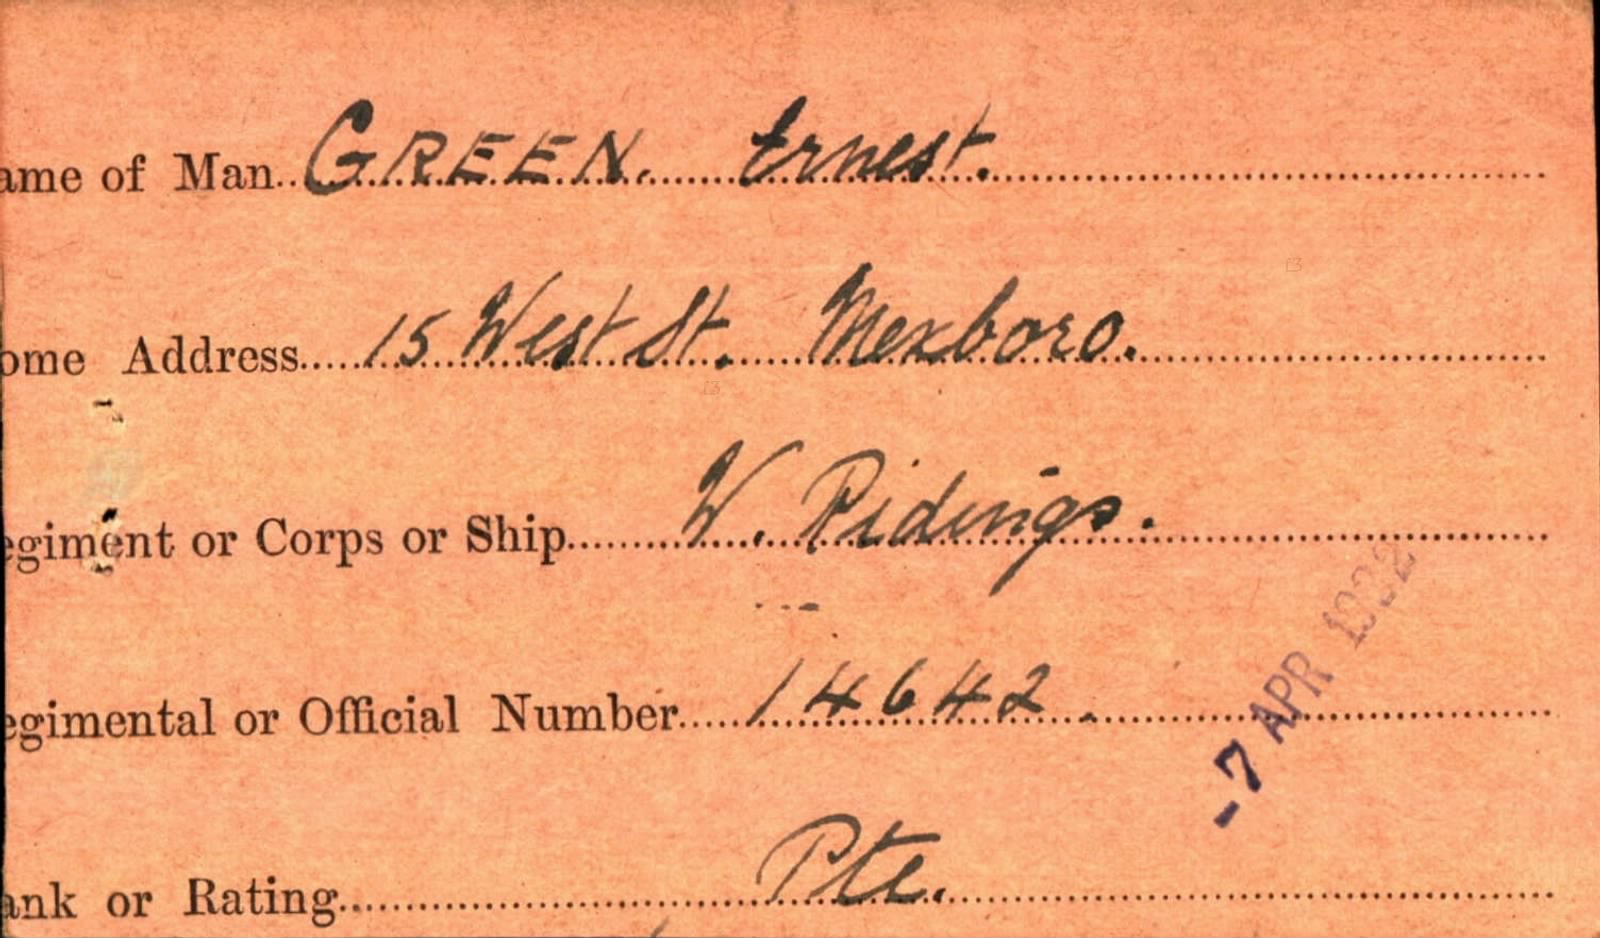 ame of Man GREEN. Ernest.
ome Address 15 West St. Mexboro.
egiment or Corps or Ship W. Ridings.
egimental or Official Number 14642.
-7 APR 1932
ank or Rating Pte.